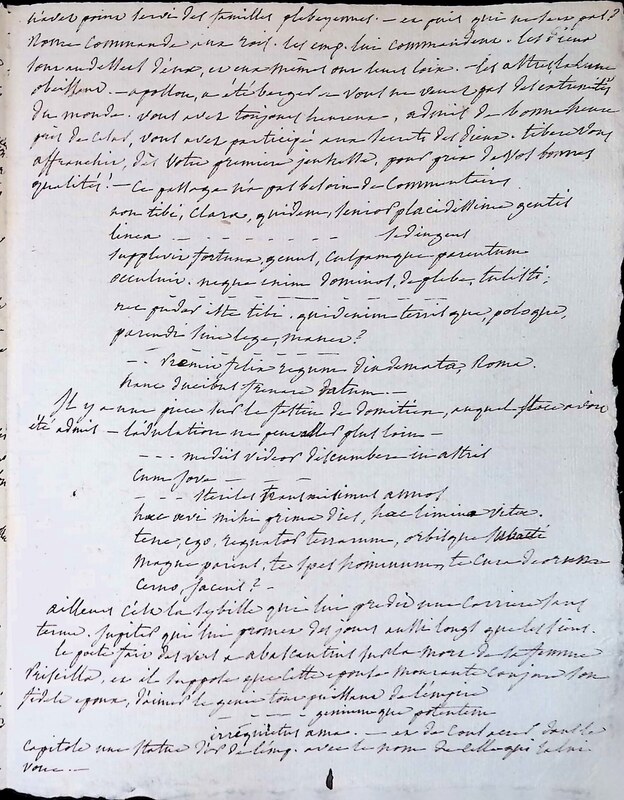 n'avez point servi des familles plebeyennes. — et puis qui ne sert pas?
Rome commande aux rois. les emp. lui commandent. les dieux
sont au dessus d'eux, et eux mêmes ont leurs loix. — les astres, la lune
obeissent. — apollon, a été berger — vous ne venez pas des extremités
du monde. vous avez toujours heureux, admis de bonne heure
près de Cesar, vous avez participé aux secrets des dieux. tibere vous
affranchit, dès votre premiere jeunesse, pour prix de vos bonnes
qualités! — Ce passage n'a pas besoin de Commentaire.
non tibi, clara, quidem, senior placidissime gentis
linea — - - - - - - sed ingens
supplevit fortuna, genus, culpamque parentum
occuluit. neque enim dominos, de plebe, tulisti;
nec pudor iste tibi. quid enim terrisque, poloque,
parendi sine lege, manet?
- - - Premit felix regum diademata, Roma.
hanc ducibus frenare datum. —
Il y a une piece sur le festin de domitien, auquel stace avoit
été admis — l'adulation ne peut aller plus loin —
- - - mediis videor discumbere in astris
cum Jove — - -
- - - steriles transmisimus annos
haec aevi mihi prima dies, haec limina vitae.
tene, ego, regnator terrarum, orbisque subacti
magne parens, te spes hominum, te cura deorum
cerno, jacens? —
ailleurs c'est la sybille qui lui predit une carriere sans
terme. Jupiter qui lui promet des jours aussi longs que les siens.
le poète fait des vers a abascantius sur la mort de sa femme
Priscilla, et il suppose que cette epouse mourante conjure son
fidele epoux, d'aimer le genie tout puissant de l'emp.
- - - - - - geniumque potentem
irrequietus ama. — et de consacrer dans le
Capitole une statue d'or de l'emp. avec le nom de celle qui la lui
voue. —